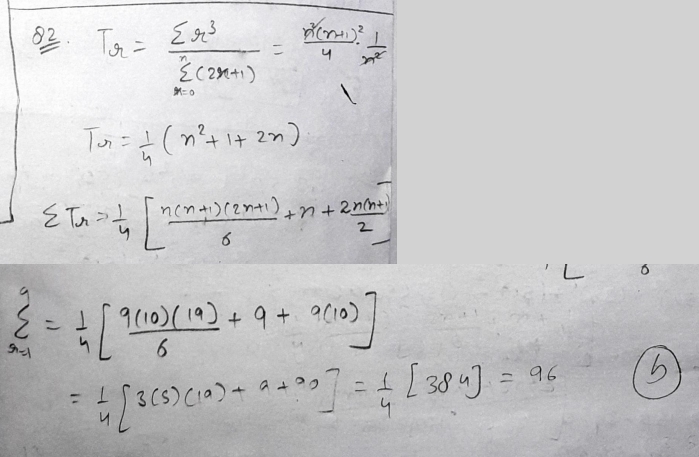 82. Tr = Σr³ / Σ(2r+1) = n²(n+1)²/4 · 1/n²
n
r=0
Tr = 1/4 (n² + 1 + 2n)
ΣTr = 1/4 [n(n+1)(2n+1)/6 + n + 2n(n+1)/2]
9
Σ = 1/4 [9(10)(19)/6 + 9 + 9(10)]
r=1
= 1/4 [3(5)(19) + 9 + 90] = 1/4 [384] = 96 (b)